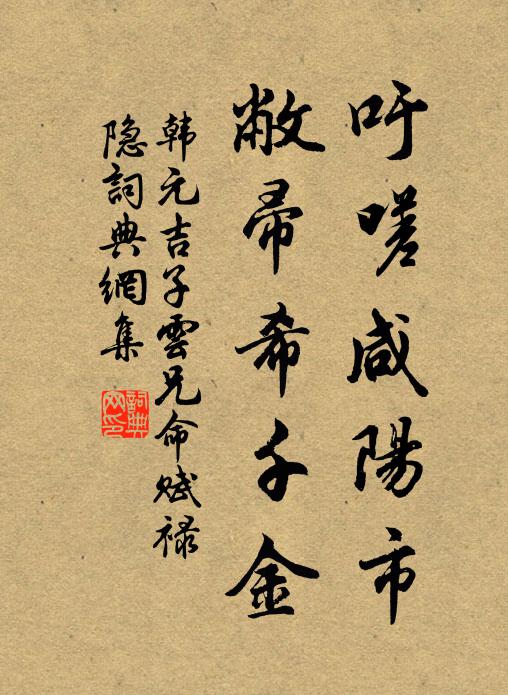 吁嗟咸陽市
敝帚希千金
韩元吉子雲兄命赋禄
隐詞典網集
詞典
网印